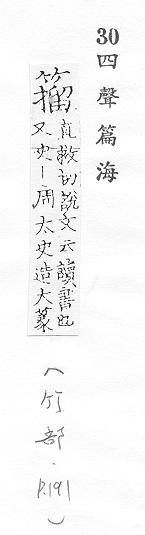 30四聲篇海
籀
直救切說文云讀書也
又史丨周太史造大篆
(竹部.P.191)